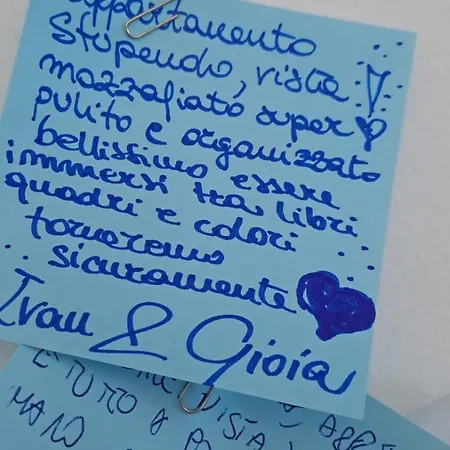 appartamento
stupendo, vista
mozzafiato super
pulito e organizzato
bellissimo essere
immersi tra libri
quadri e colori
torneremo
sicuramente
Ivan & Gioia
VISTA
E TUTTO A
MANO